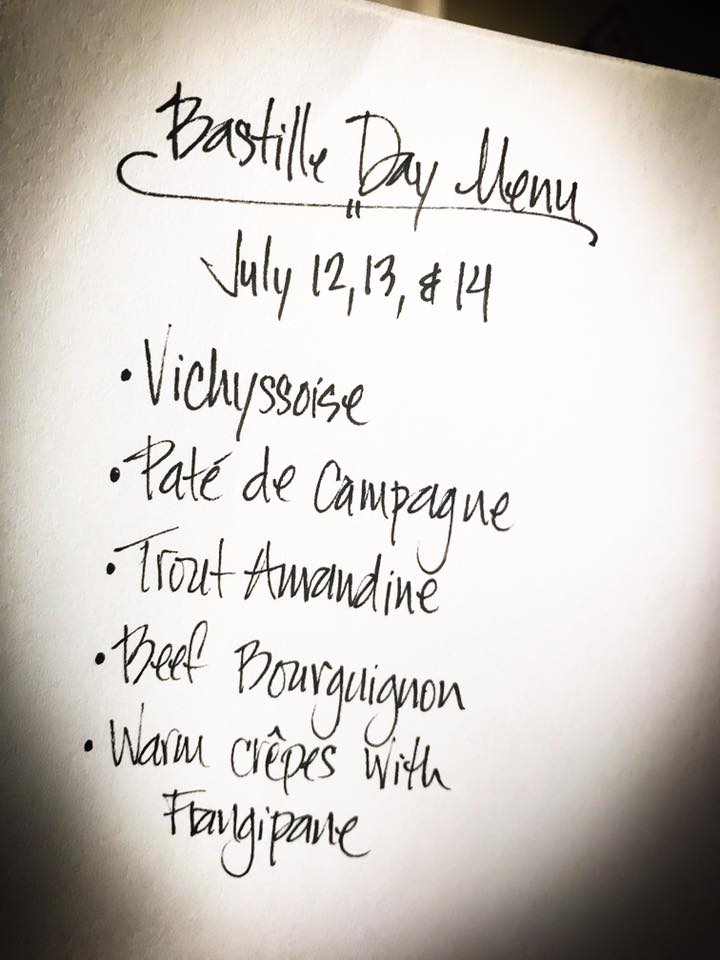 Bastille Day Menu
July 12, 13, & 14
• Vichyssoise
• Paté de Campagne
• Trout Amandine
• Beef Bourguignon
• Warm crêpes with
Frangipane